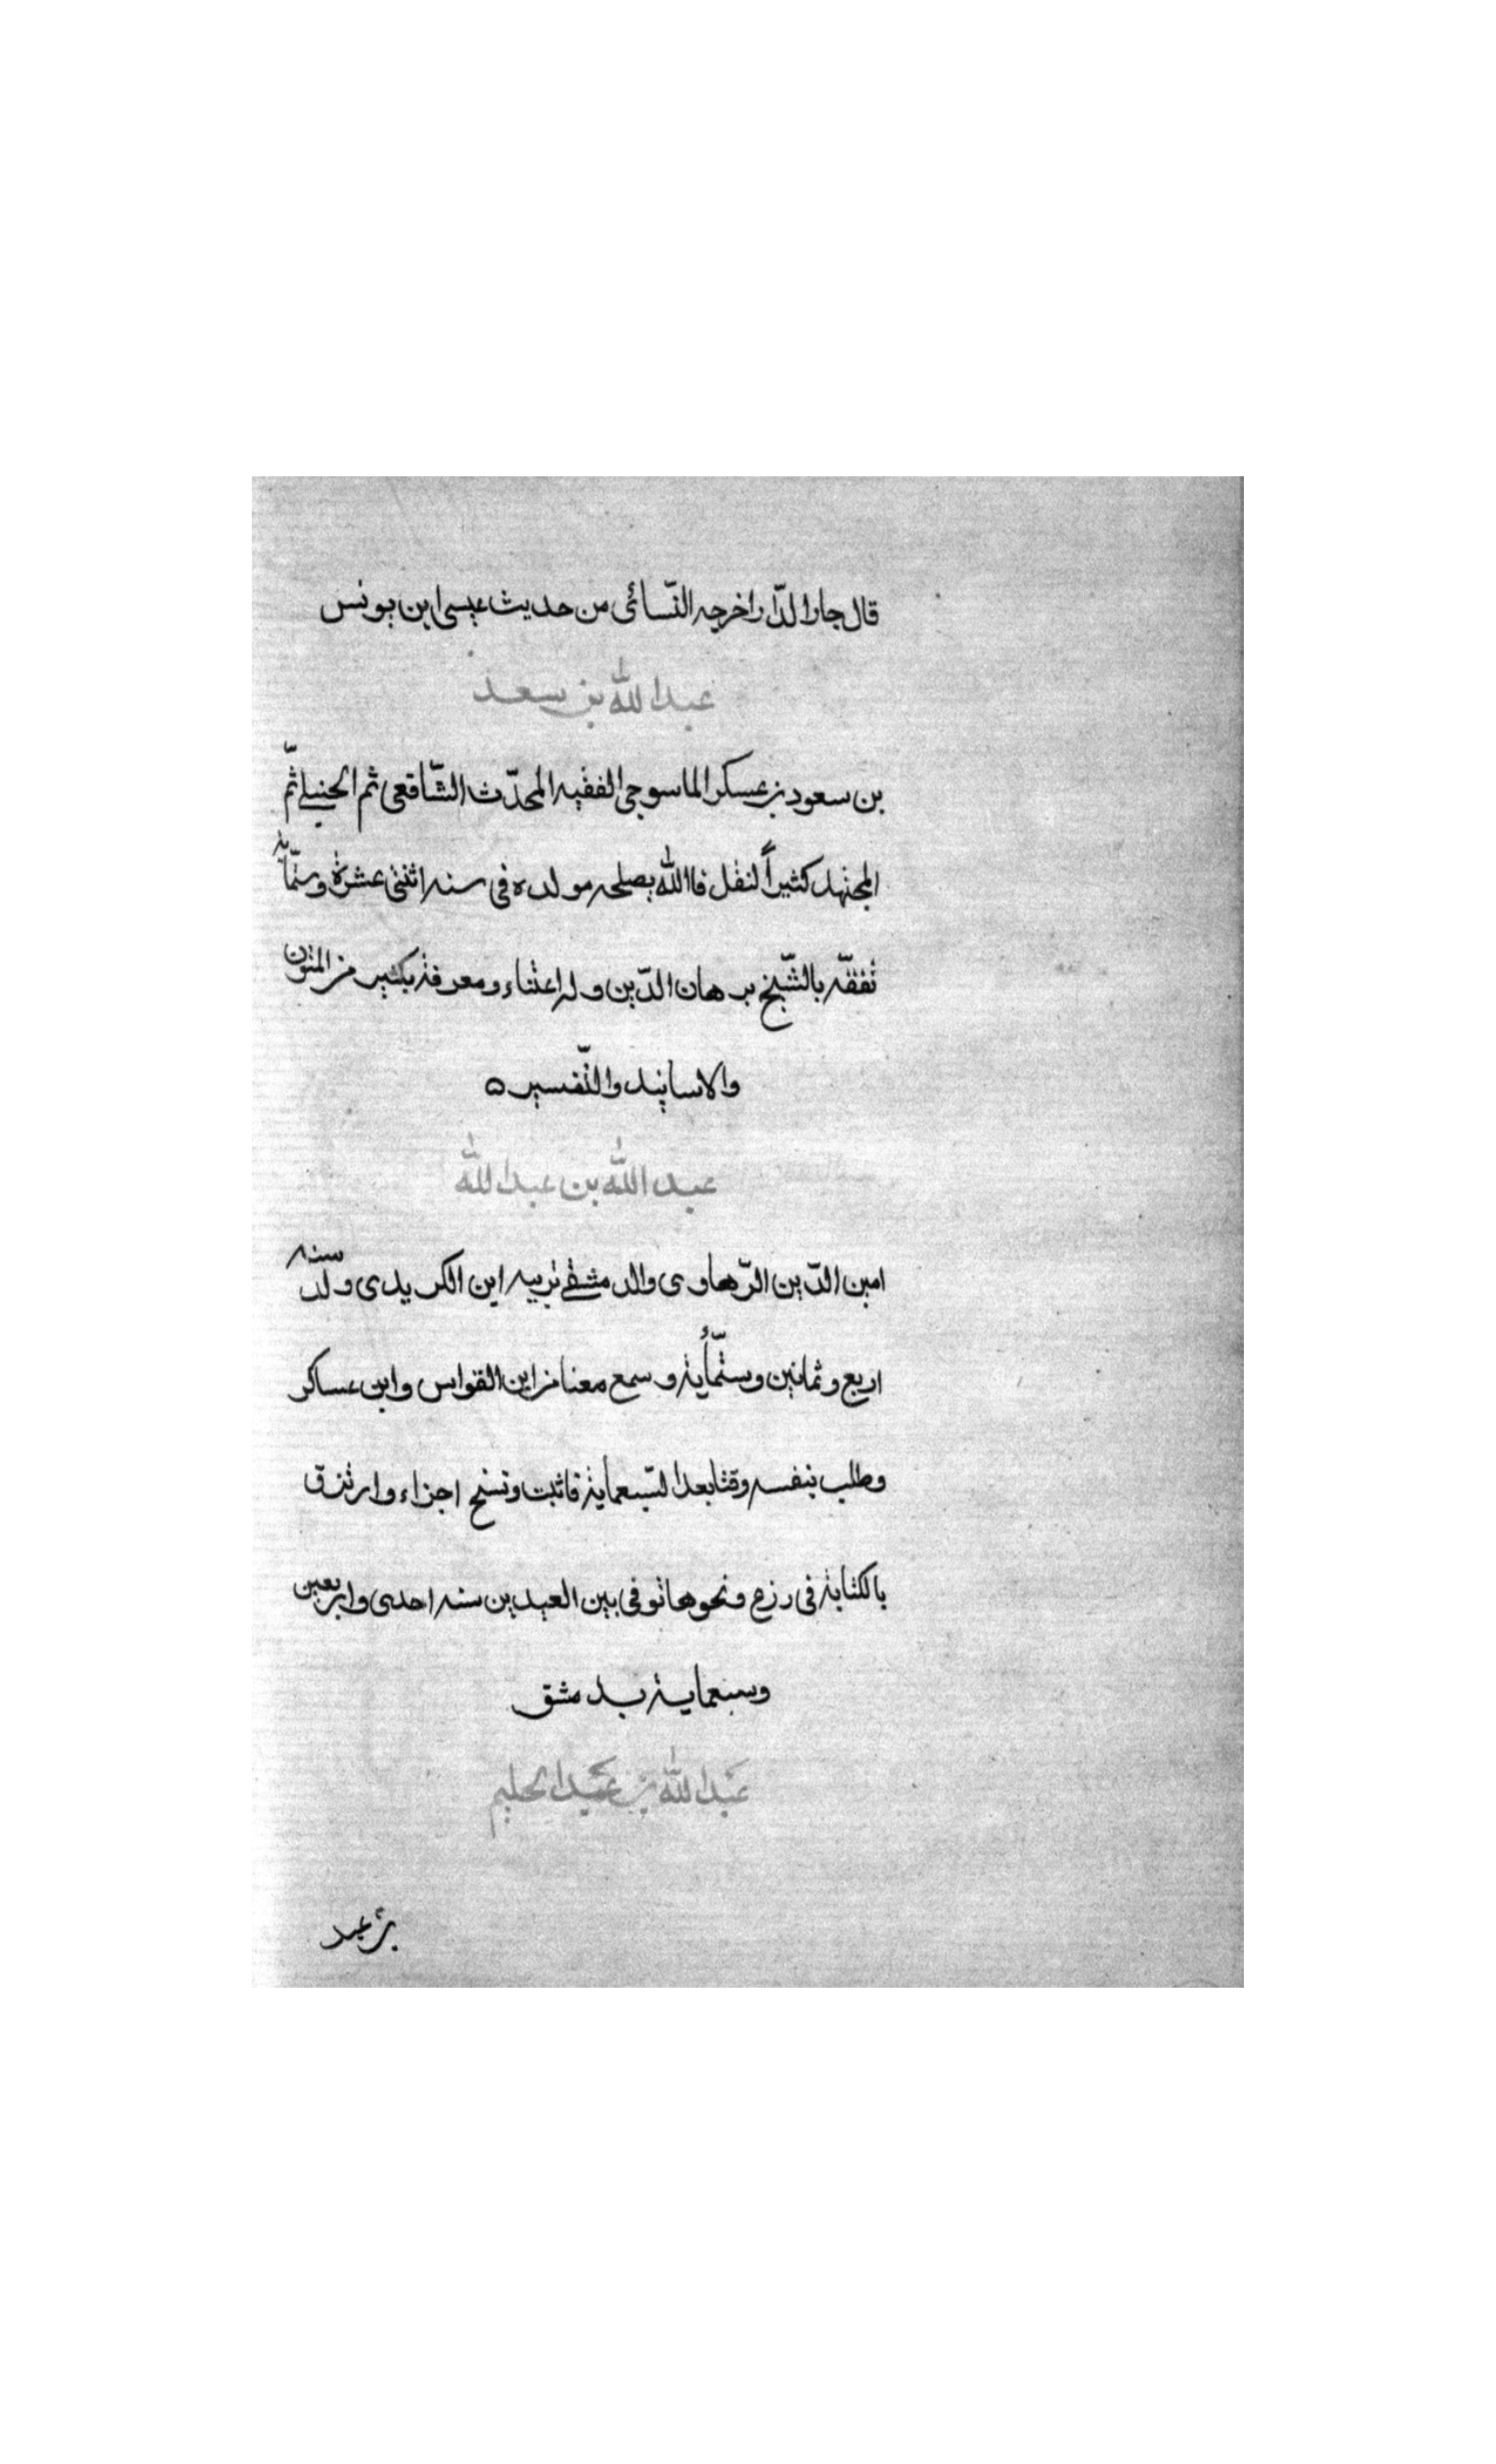 قال جار الدّار اخرجه النّسائى من حديث عيسى ابن يونس
عبد الله بن سعد
بن سعود بن عسكر الماسوجى الفقيه المحدّث الشّافعى ثم الحنبلى ثمّ
المجتهد كثيراً لنقل فالله يصلحه مولده فى سنه اثنتى عشرة وستّمايه
تفقّه بالشّيخ برهان الدّين وله اعتناء ومعرفة بكثير من المتون
والاسانيد والتّفسير ه
عبد الله بن عبد الله
امين الدّين الرّهاوى والدمشقى تربيه ابن الكريدى ولد سنه
اربع وثمانين وستّمأية وسمع معنا من ابن القواس وابن عساكر
وطلب بنفسه وقتا بعد السّبعمأية فاثبت ونسخ اجزاء وارتزق
بالكتابة فى رزع ونحوها توفى بين العيدين سنه احدى واربعين
وسبعماية بدمشق
عبد الله بن عبد الحليم
بن عبد